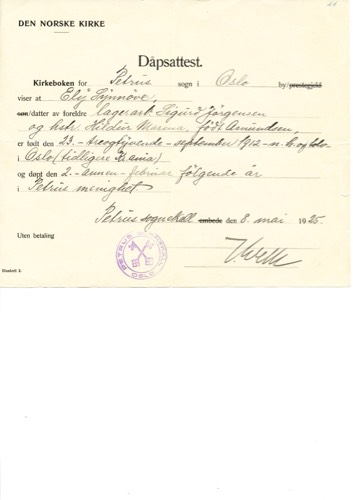 DEN NORSKE KIRKE
Dåpsattest.
Kirkeboken for Petrus sogn i Oslo by/prestegjeld
viser at Ely Synnöve,
søn/datter av foreldre lagerarb. Sigurd Jörgensen
og hstr. Hildur Marina, født Amundsen,
er født den 23.-treogtyvende-september 1912-n.h.og tolv-
i Oslo (tidligere Krania)
og døpt den 2.-annen-februar følgende år
i Petrus menighet
Petrus sognekall embede den 8. mai 1925.
Uten betaling
PETRUS
OSLO
Blankett 2.